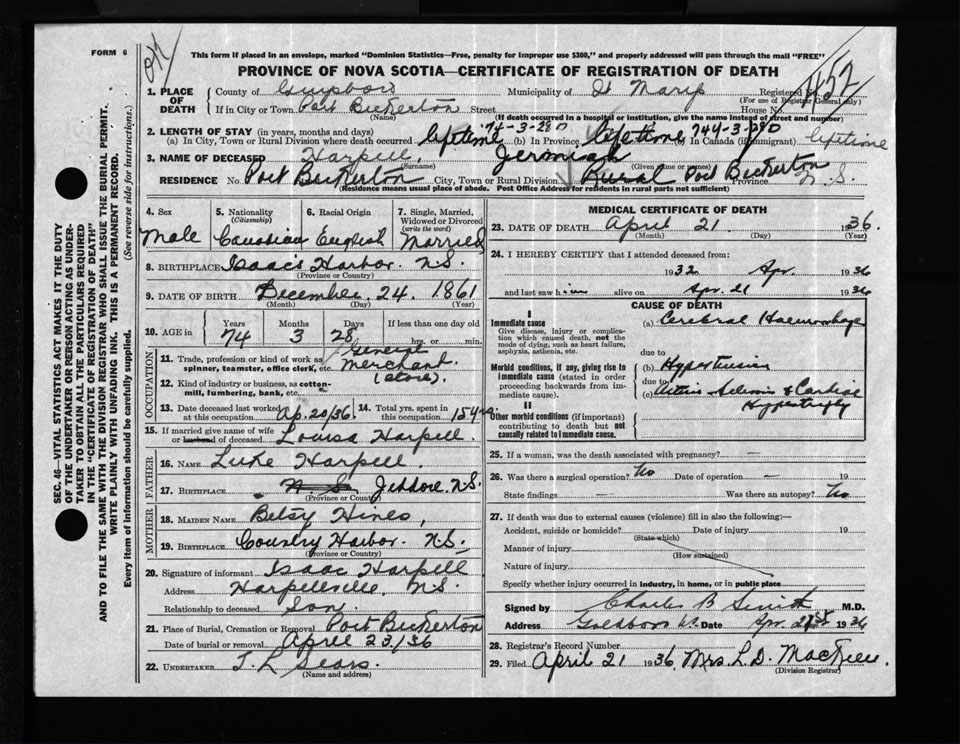 FORM 6
This form if placed in an envelope, marked "Dominion Statistics—Free, penalty for improper use $300," and properly addressed will pass through the mail "FREE"
PROVINCE OF NOVA SCOTIA—CERTIFICATE OF REGISTRATION OF DEATH
1. PLACE OF DEATH
County of Guysboro Municipality of St Marys Registered No.
(For use of Registrar General only)
If in City or Town Port Bickerton Street House No.
(Name) (If death occurred in a hospital or institution, give the name instead of street and number)
2. LENGTH OF STAY (in years, months and days)
(a) In City, Town or Rural Division where death occurred lifetime (b) In Province lifetime (c) In Canada (if immigrant) lifetime
3. NAME OF DECEASED Harpell, Jeremiah
(Surname) (Given name or names)
RESIDENCE No. Port Bickerton City, Town or Rural Division Rural Port Bickerton Province N.S.
(Residence means usual place of abode. Post Office Address for residents in rural parts not sufficient)
SEC. 46—VITAL STATISTICS ACT MAKES IT THE DUTY OF THE UNDERTAKER OR PERSON ACTING AS UNDERTAKER TO OBTAIN ALL THE PARTICULARS REQUIRED IN THE "CERTIFICATE OF REGISTRATION OF DEATH" AND TO FILE THE SAME WITH THE DIVISION REGISTRAR WHO SHALL ISSUE THE BURIAL PERMIT.
WRITE PLAINLY WITH UNFADING INK. THIS IS A PERMANENT RECORD.
Every item of information should be carefully supplied. (See reverse side for instructions.)
4. Sex
Male
5. Nationality
(Citizenship)
Canadian
6. Racial Origin
English
7. Single, Married, Widowed or Divorced
(write the word)
Married
8. BIRTHPLACE Isaac's Harbor. N.S.
(Province or Country)
9. DATE OF BIRTH December 24. 1861
(Month) (Day) (Year)
10. AGE in
Years Months Days If less than one day old
74 3 28 hrs. or min.
OCCUPATION
11. Trade, profession or kind of work as spinner, teamster, office clerk, etc. General Merchant
12. Kind of industry or business, as cotton-mill, lumbering, bank, etc. (store).
13. Date deceased last worked at this occupation Ap. 20/36.
14. Total yrs. spent in this occupation.
15. If married give name of wife or husband of deceased Louisa Harpell.
FATHER
16. NAME Luke Harpell.
17. BIRTHPLACE N S Jeddore N.S.
(Province or Country)
MOTHER
18. MAIDEN NAME Betsy Hines,
19. BIRTHPLACE Country Harbor. N.S.
(Province or Country)
20. Signature of informant Isaac Harpell
Address Harpellville, N.S.
Relationship to deceased Son.
21. Place of Burial, Cremation or Removal Port Bickerton
Date of burial or removal April 23/36
22. UNDERTAKER J. L. Sears.
(Name and address)
MEDICAL CERTIFICATE OF DEATH
23. DATE OF DEATH April 21 1936.
(Month) (Day) (Year)
24. I HEREBY CERTIFY that I attended deceased from:
1932 Apr. 1936
and last saw him alive on Apr. 21 1936
CAUSE OF DEATH
I
Immediate cause
Give disease, injury or complication which caused death, not the mode of dying, such as heart failure, asphyxia, asthenia, etc.
(a) Cerebral Haemorrhage
due to
Morbid conditions, if any, giving rise to immediate cause (stated in order proceeding backwards from immediate cause).
(b) Hypertension
due to
(c) & Cardiac Hypertrophy
II
Other morbid conditions (if important) contributing to death but not causally related to immediate cause.
25. If a woman, was the death associated with pregnancy? —
26. Was there a surgical operation? No Date of operation — 19
State findings — Was there an autopsy? No
27. If death was due to external causes (violence) fill in also the following:—
Accident, suicide or homicide? Date of injury 19
(State which)
Manner of injury
(How sustained)
Nature of injury
Specify whether injury occurred in industry, in home, or in public place
Signed by Charles B Smith M.D.
Address Goldboro N.S. Date Apr. 21st 1936
28. Registrar's Record Number
29. Filed April 21 1936. Mrs. L. D.
(Division Registrar)